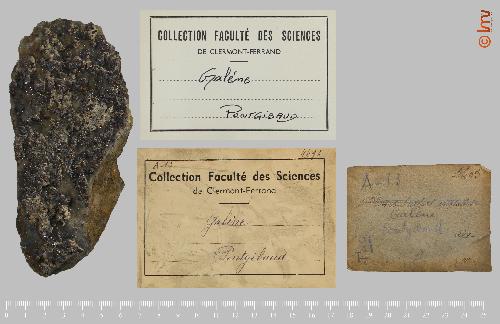 COLLECTION FACULTÉ DES SCIENCES
DE CLERMONT-FERRAND
Galène
PONTGIBAUD
A-13
Collection Faculté des Sciences
de Clermont-Ferrand
Galène
Pontgibaud
A-13
Galène
Pontgibaud
lmv
0 1 2 3 4 5 6 7 8 9 10 11 12 13 14 15 16 17 18 19 20 21 22 23 24 25